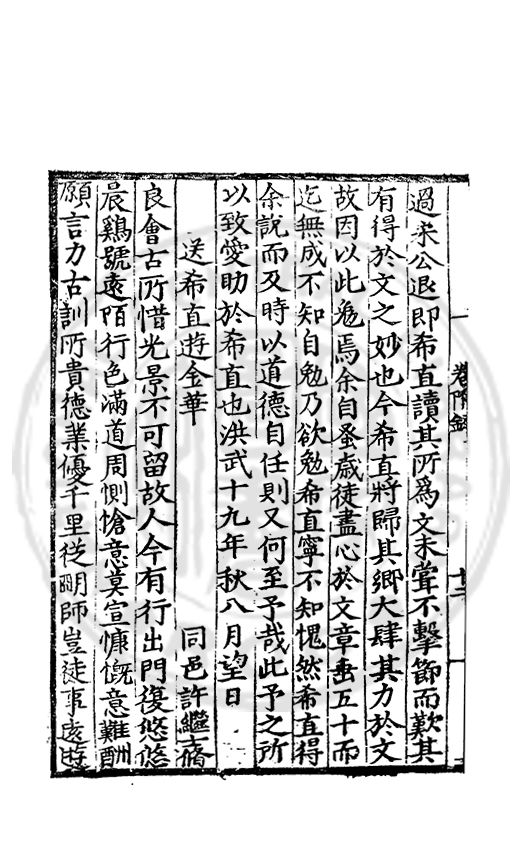 卷附錄
十二
過未公退即希直讀其所爲文未嘗不擊節而歎其
有得於文之妙也今希直將歸其鄉大肆其力於文
故因以此勉焉余自蚤歲徒盡心於文章垂五十而
迄無成不知自勉乃欲勉希直寧不知愧然希直得
余說而及時以道德自任則又何至予哉此予之所
以致愛助於希直也洪武十九年秋八月望日
送希直遊金華
同邑許繼士脩
良會古所惜光景不可留故人今有行出門復悠悠
晨鷄號遠陌行色滿道周惻愴意莫宣慷慨意難酬
願言力古訓所貴德業優千里從明師豈徒事遠遊